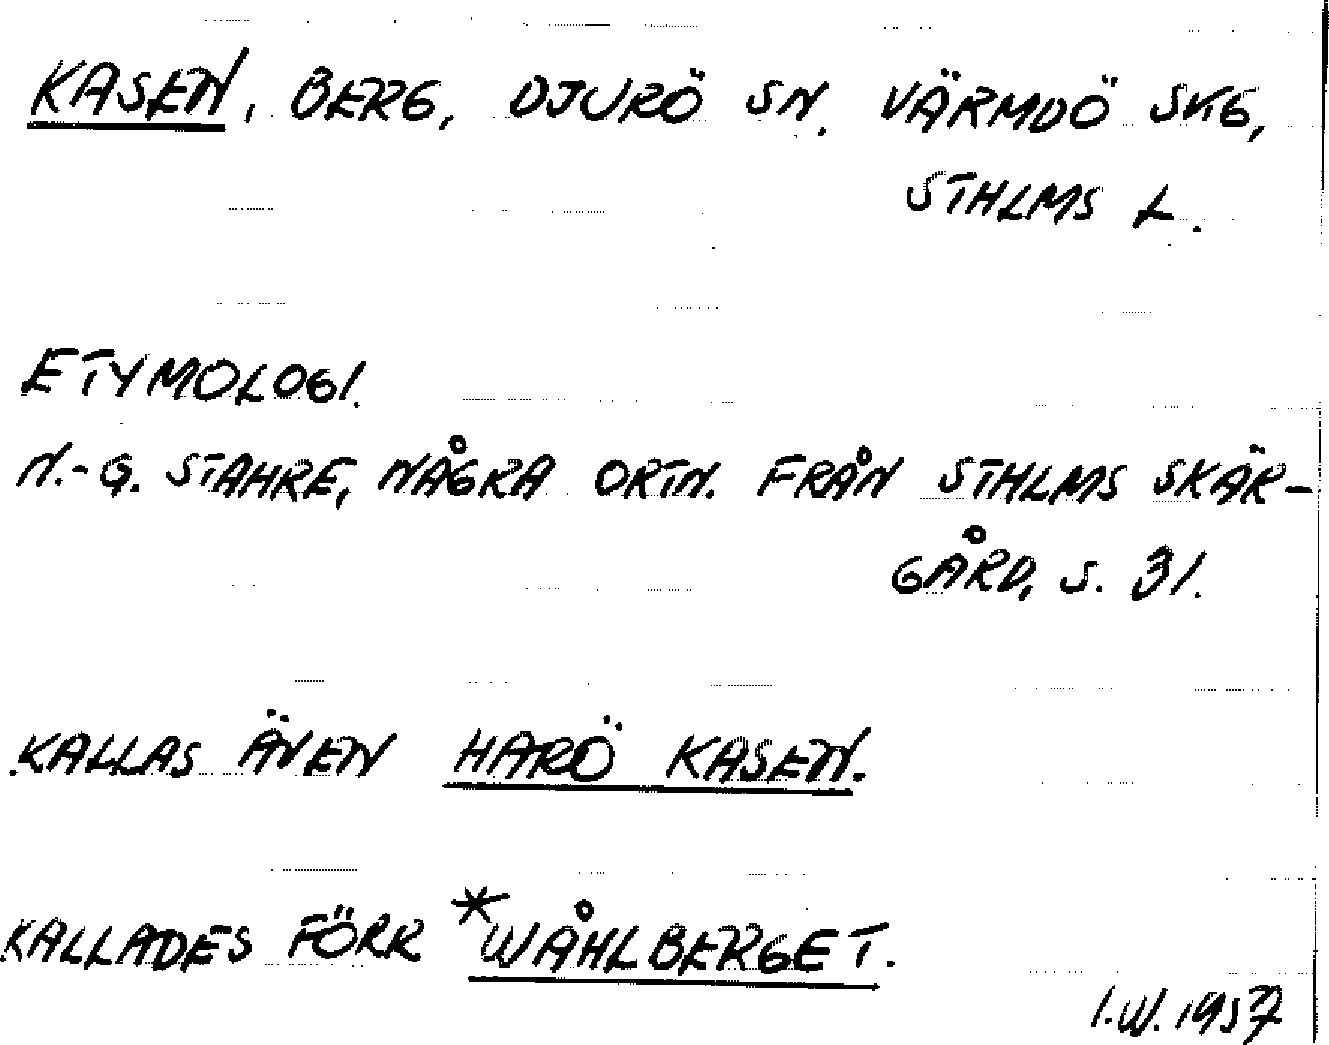 KASEN, BERG, DJURÖ SN. VÄRMDÖ SKG,
STHLMS L.
ETYMOLOGI.
N.-G. STAHRE, NÅGRA ORTN. FRÅN STHLMS SKÄR-
GÅRD, S. 31.
KALLAS ÄVEN HARÖ KASEN.
KALLADES FÖRR *WÅHLBERGET.
I.W. 1957